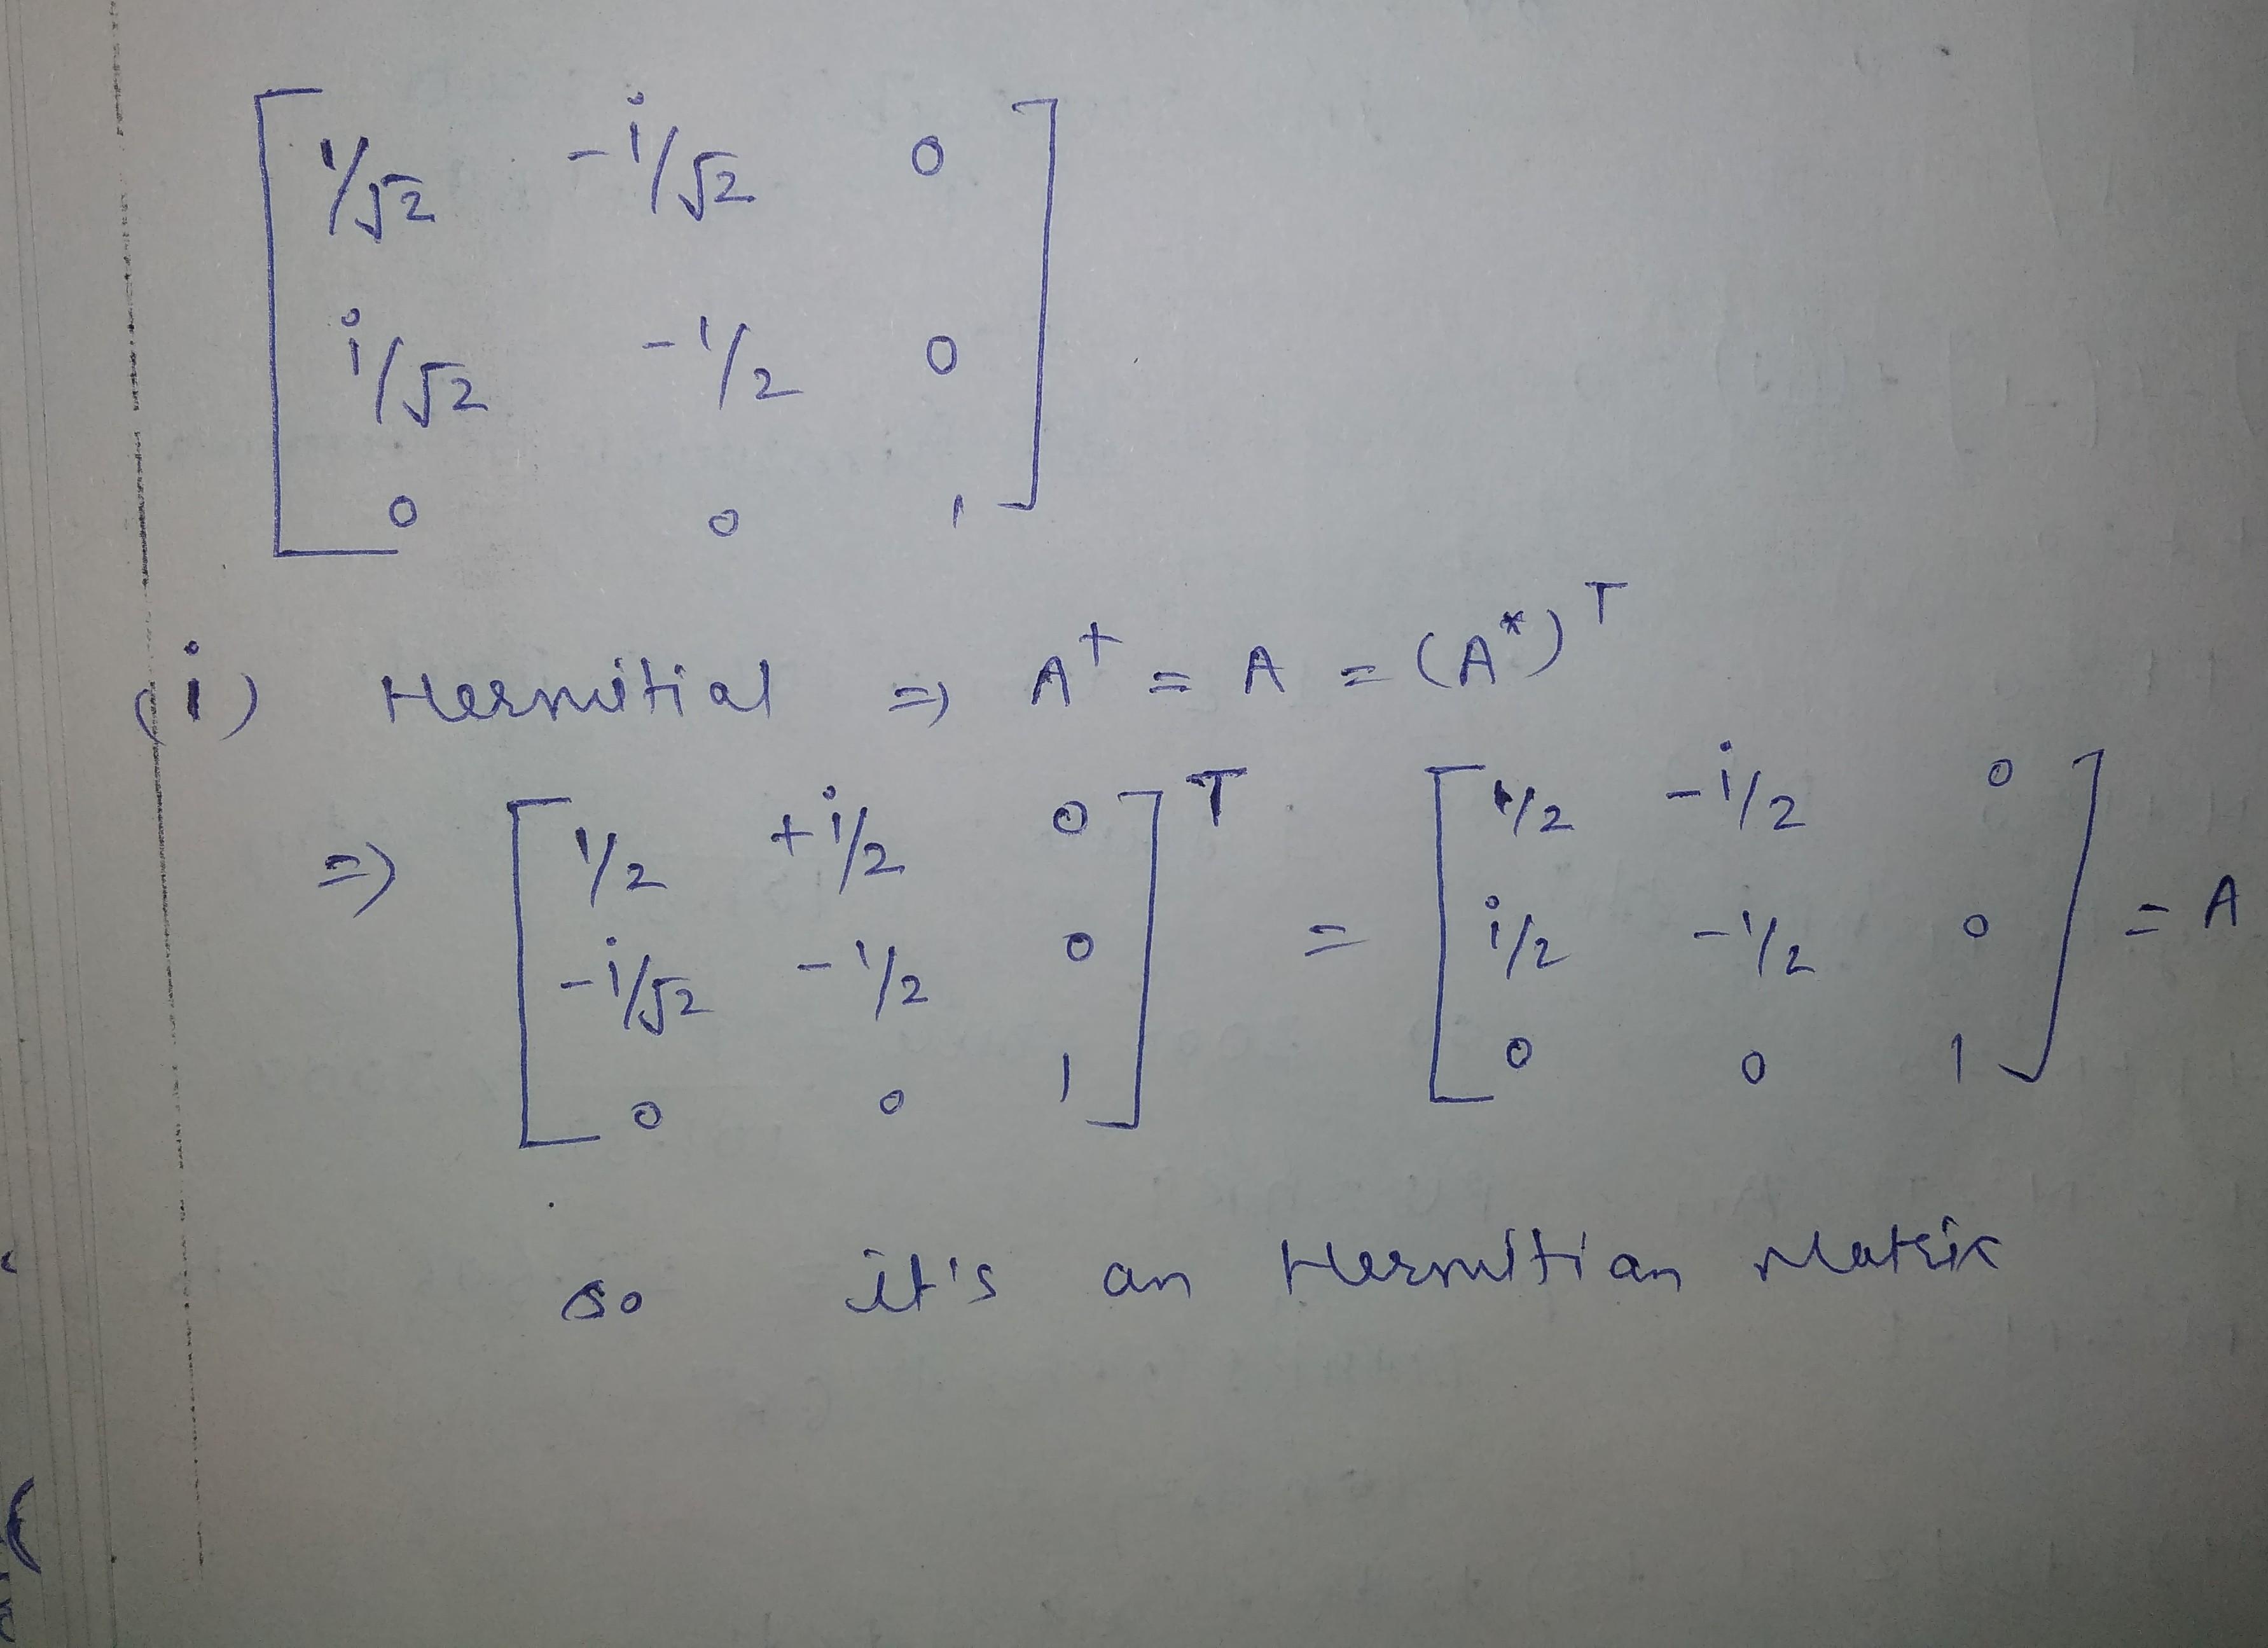 1/√2 -i/√2 0
i/√2 -1/2 0
0 0 1
(i) Hermitial => A† = A = (A*)ᵀ
=> [ 1/2 +i/2 0 ]ᵀ = [ 1/2 -i/2 0 ] = A
-i/√2 -1/2 0 i/2 -1/2 0
0 0 1 0 0 1
so it's an Hermitian Matrix